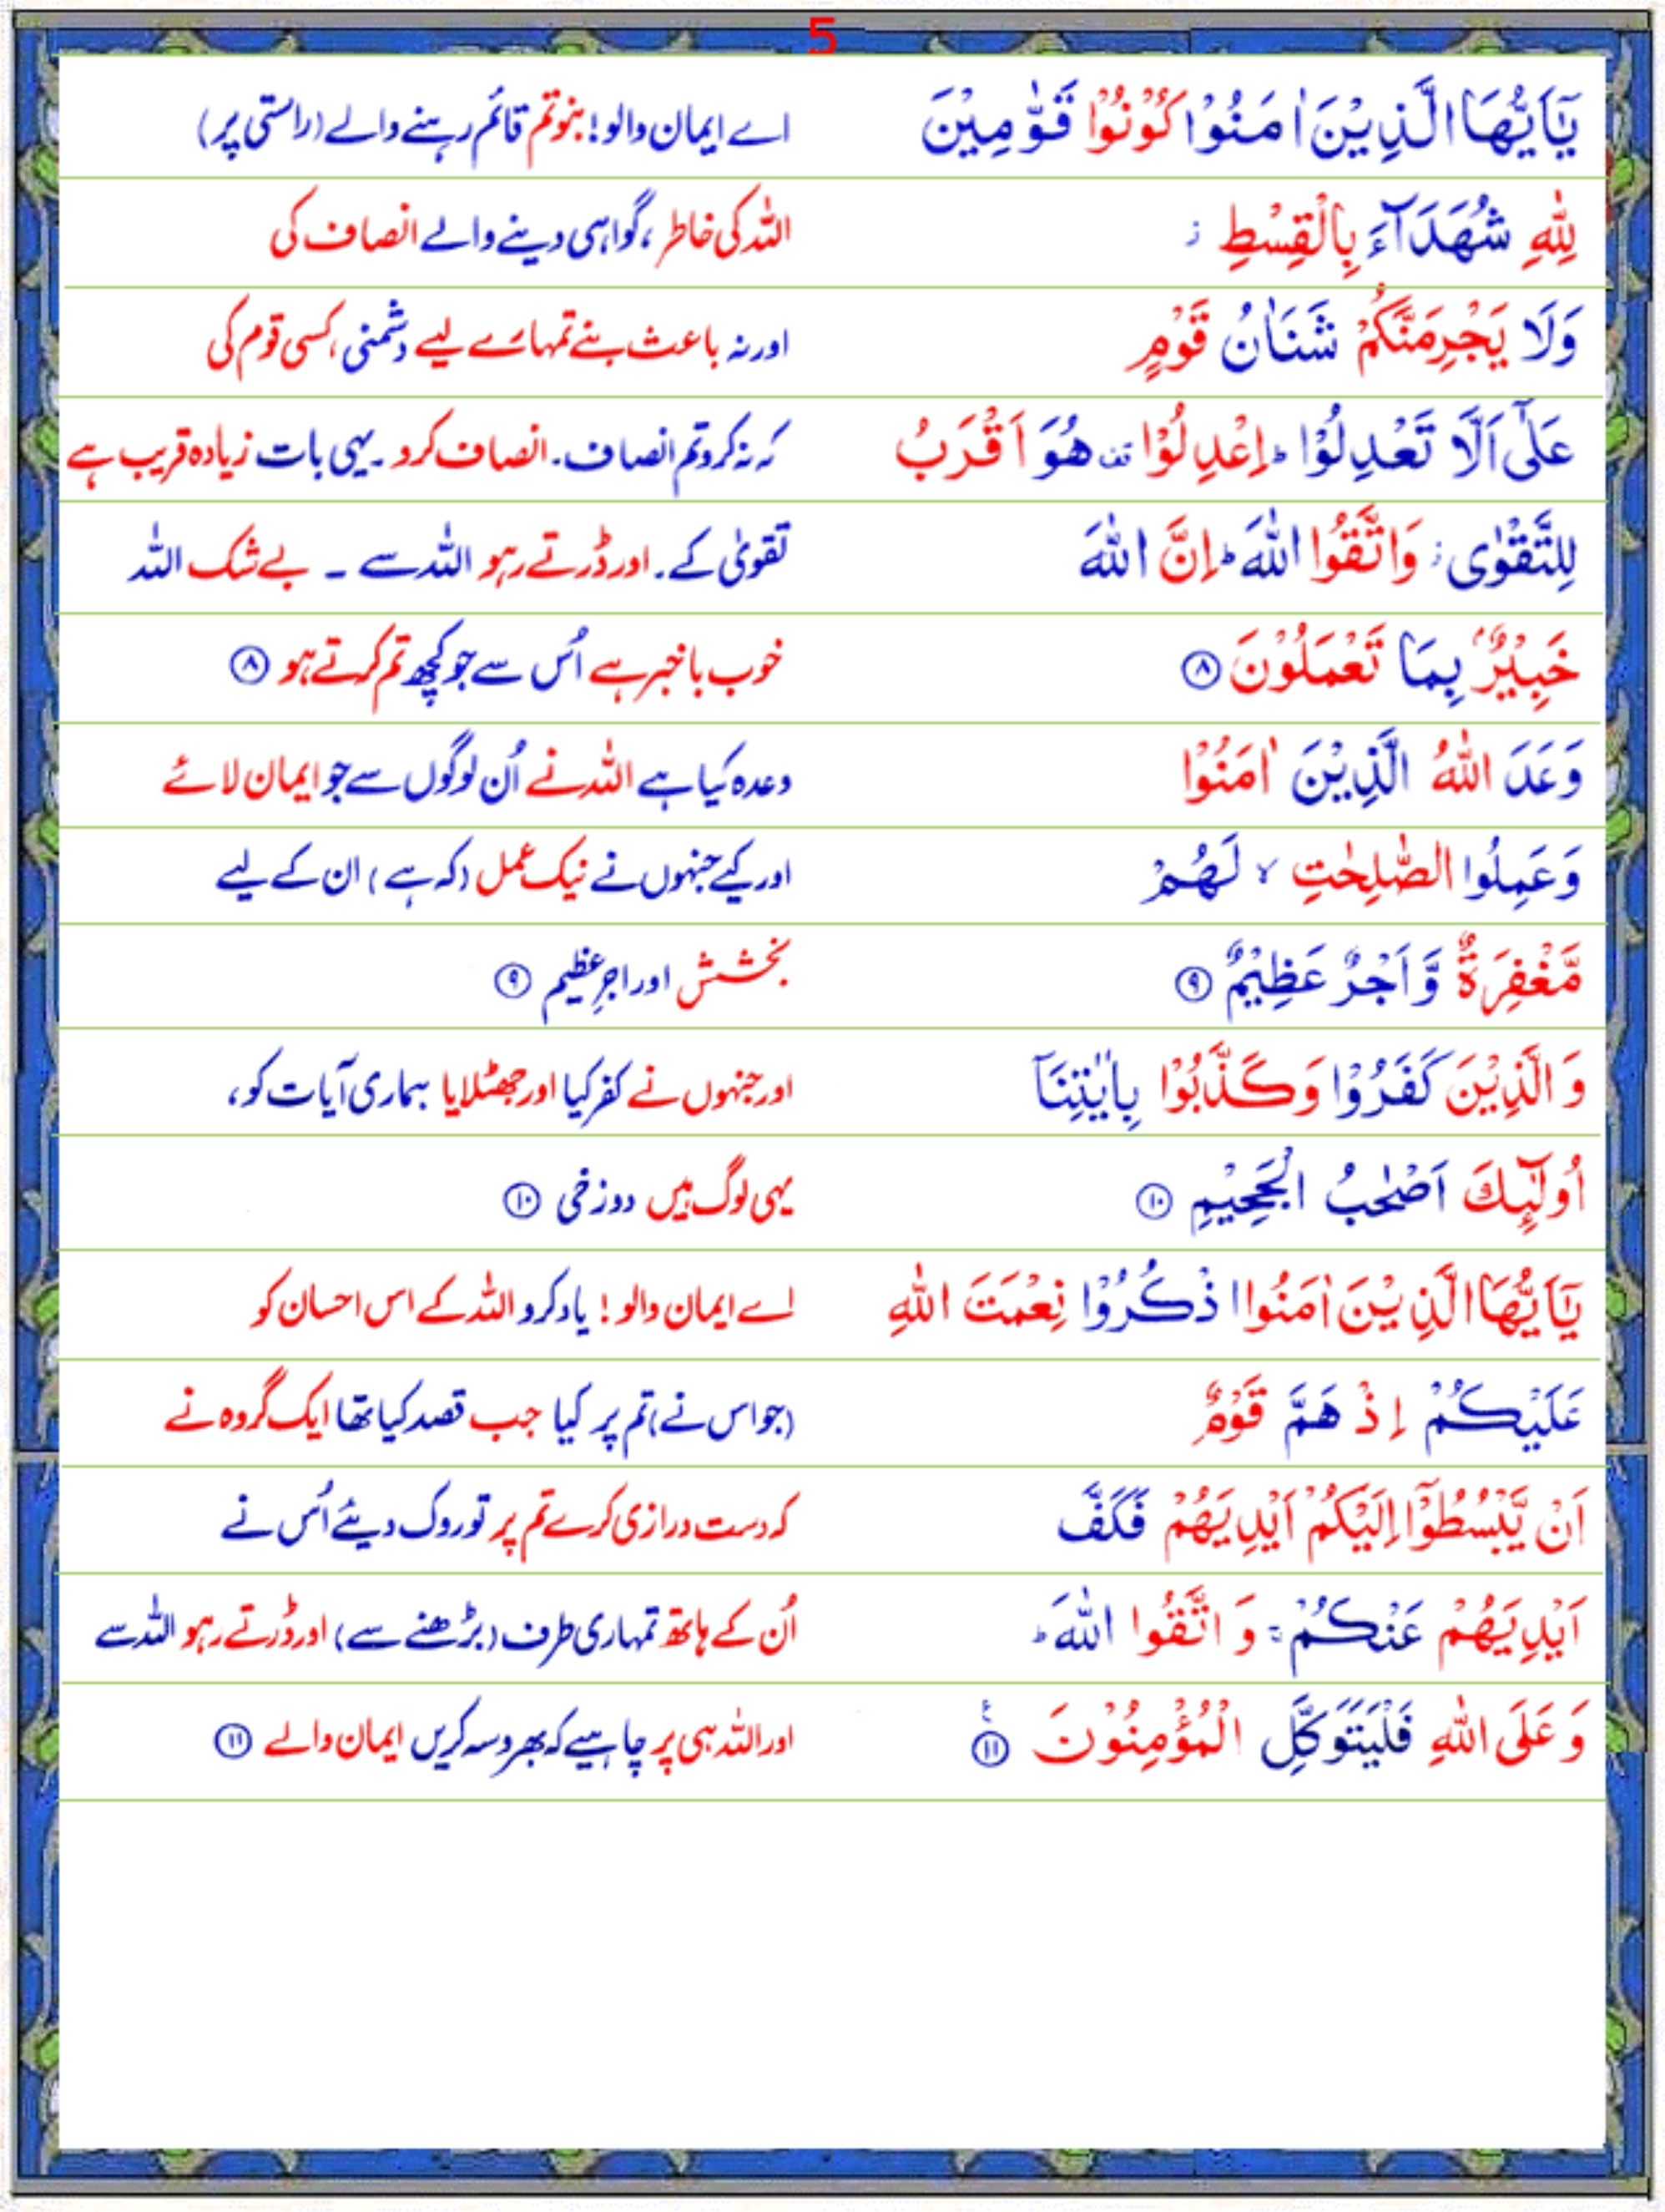 5
يٰۤاَيُّهَا الَّذِيْنَ اٰمَنُوْا كُوْنُوْا قَوّٰمِيْنَ اے ایمان والو! بنو تم قائم رہنے والے (راستی پر)
لِلّٰهِ شُهَدَآءَ بِالْقِسْطِ ز اللہ کی خاطر، گواہی دینے والے انصاف کی
وَلَا يَجْرِمَنَّكُمْ شَنَاٰنُ قَوْمٍ اور نہ باعث بنے تمہارے لیے دشمنی، کسی قوم کی
عَلٰۤى اَلَّا تَعْدِلُوْا ؕ اِعْدِلُوْا قف هُوَ اَقْرَبُ کہ نہ کرو تم انصاف۔ انصاف کرو۔ یہی بات زیادہ قریب ہے
لِلتَّقْوٰى ز وَاتَّقُوا اللّٰهَ ؕ اِنَّ اللّٰهَ تقویٰ کے۔ اور ڈرتے رہو اللہ سے ۔ بے شک اللہ
خَبِيْرٌۢ بِمَا تَعْمَلُوْنَ ۸ خوب باخبر ہے اُس سے جو کچھ تم کرتے ہو ۸
وَعَدَ اللّٰهُ الَّذِيْنَ اٰمَنُوْا وعدہ کیا ہے اللہ نے اُن لوگوں سے جو ایمان لائے
وَعَمِلُوا الصّٰلِحٰتِ ۙ لَهُمْ اور کیے جنہوں نے نیک عمل (کہ ہے) ان کے لیے
مَّغْفِرَةٌ وَّاَجْرٌ عَظِيْمٌ ۹ بخشش اور اجرِ عظیم ۹
وَ الَّذِيْنَ كَفَرُوْا وَكَذَّبُوْا بِاٰيٰتِنَاۤ اور جنہوں نے کفر کیا اور جھٹلایا ہماری آیات کو،
اُولٰٓئِكَ اَصْحٰبُ الْجَحِيْمِ ۱۰ یہی لوگ ہیں دوزخی ۱۰
يٰۤاَيُّهَا الَّذِيْنَ اٰمَنُوا اذْكُرُوْا نِعْمَتَ اللّٰهِ اے ایمان والو! یاد کرو اللہ کے اس احسان کو
عَلَيْكُمْ اِذْ هَمَّ قَوْمٌ (جو اس نے) تم پر کیا جب قصد کیا تھا ایک گروہ نے
اَنْ يَّبْسُطُوْۤا اِلَيْكُمْ اَيْدِيَهُمْ فَكَفَّ کہ دست درازی کرے تم پر تو روک دیئے اُس نے
اَيْدِيَهُمْ عَنْكُمْ ۚ وَ اتَّقُوا اللّٰهَ ؕ اُن کے ہاتھ تمہاری طرف (بڑھنے سے) اور ڈرتے رہو اللہ سے
وَ عَلَى اللّٰهِ فَلْيَتَوَكَّلِ الْمُؤْمِنُوْنَ ۱۱ ع اور اللہ ہی پر چاہیے کہ بھروسہ کریں ایمان والے ۱۱